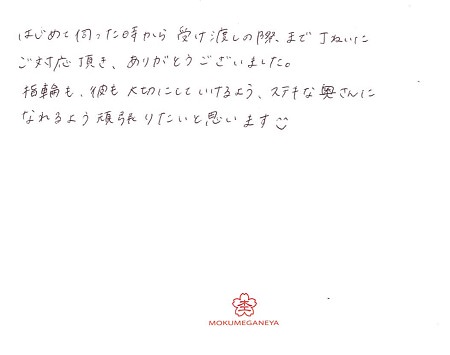 はじめて伺った時から受け渡しの際、まで丁ねいに
ご対応頂き、ありがとうございました。
指輪も、彼も大切にしていけるよう、ステキな奥さんに
なれるよう頑張りたいと思います
MOKUMEGANEYA